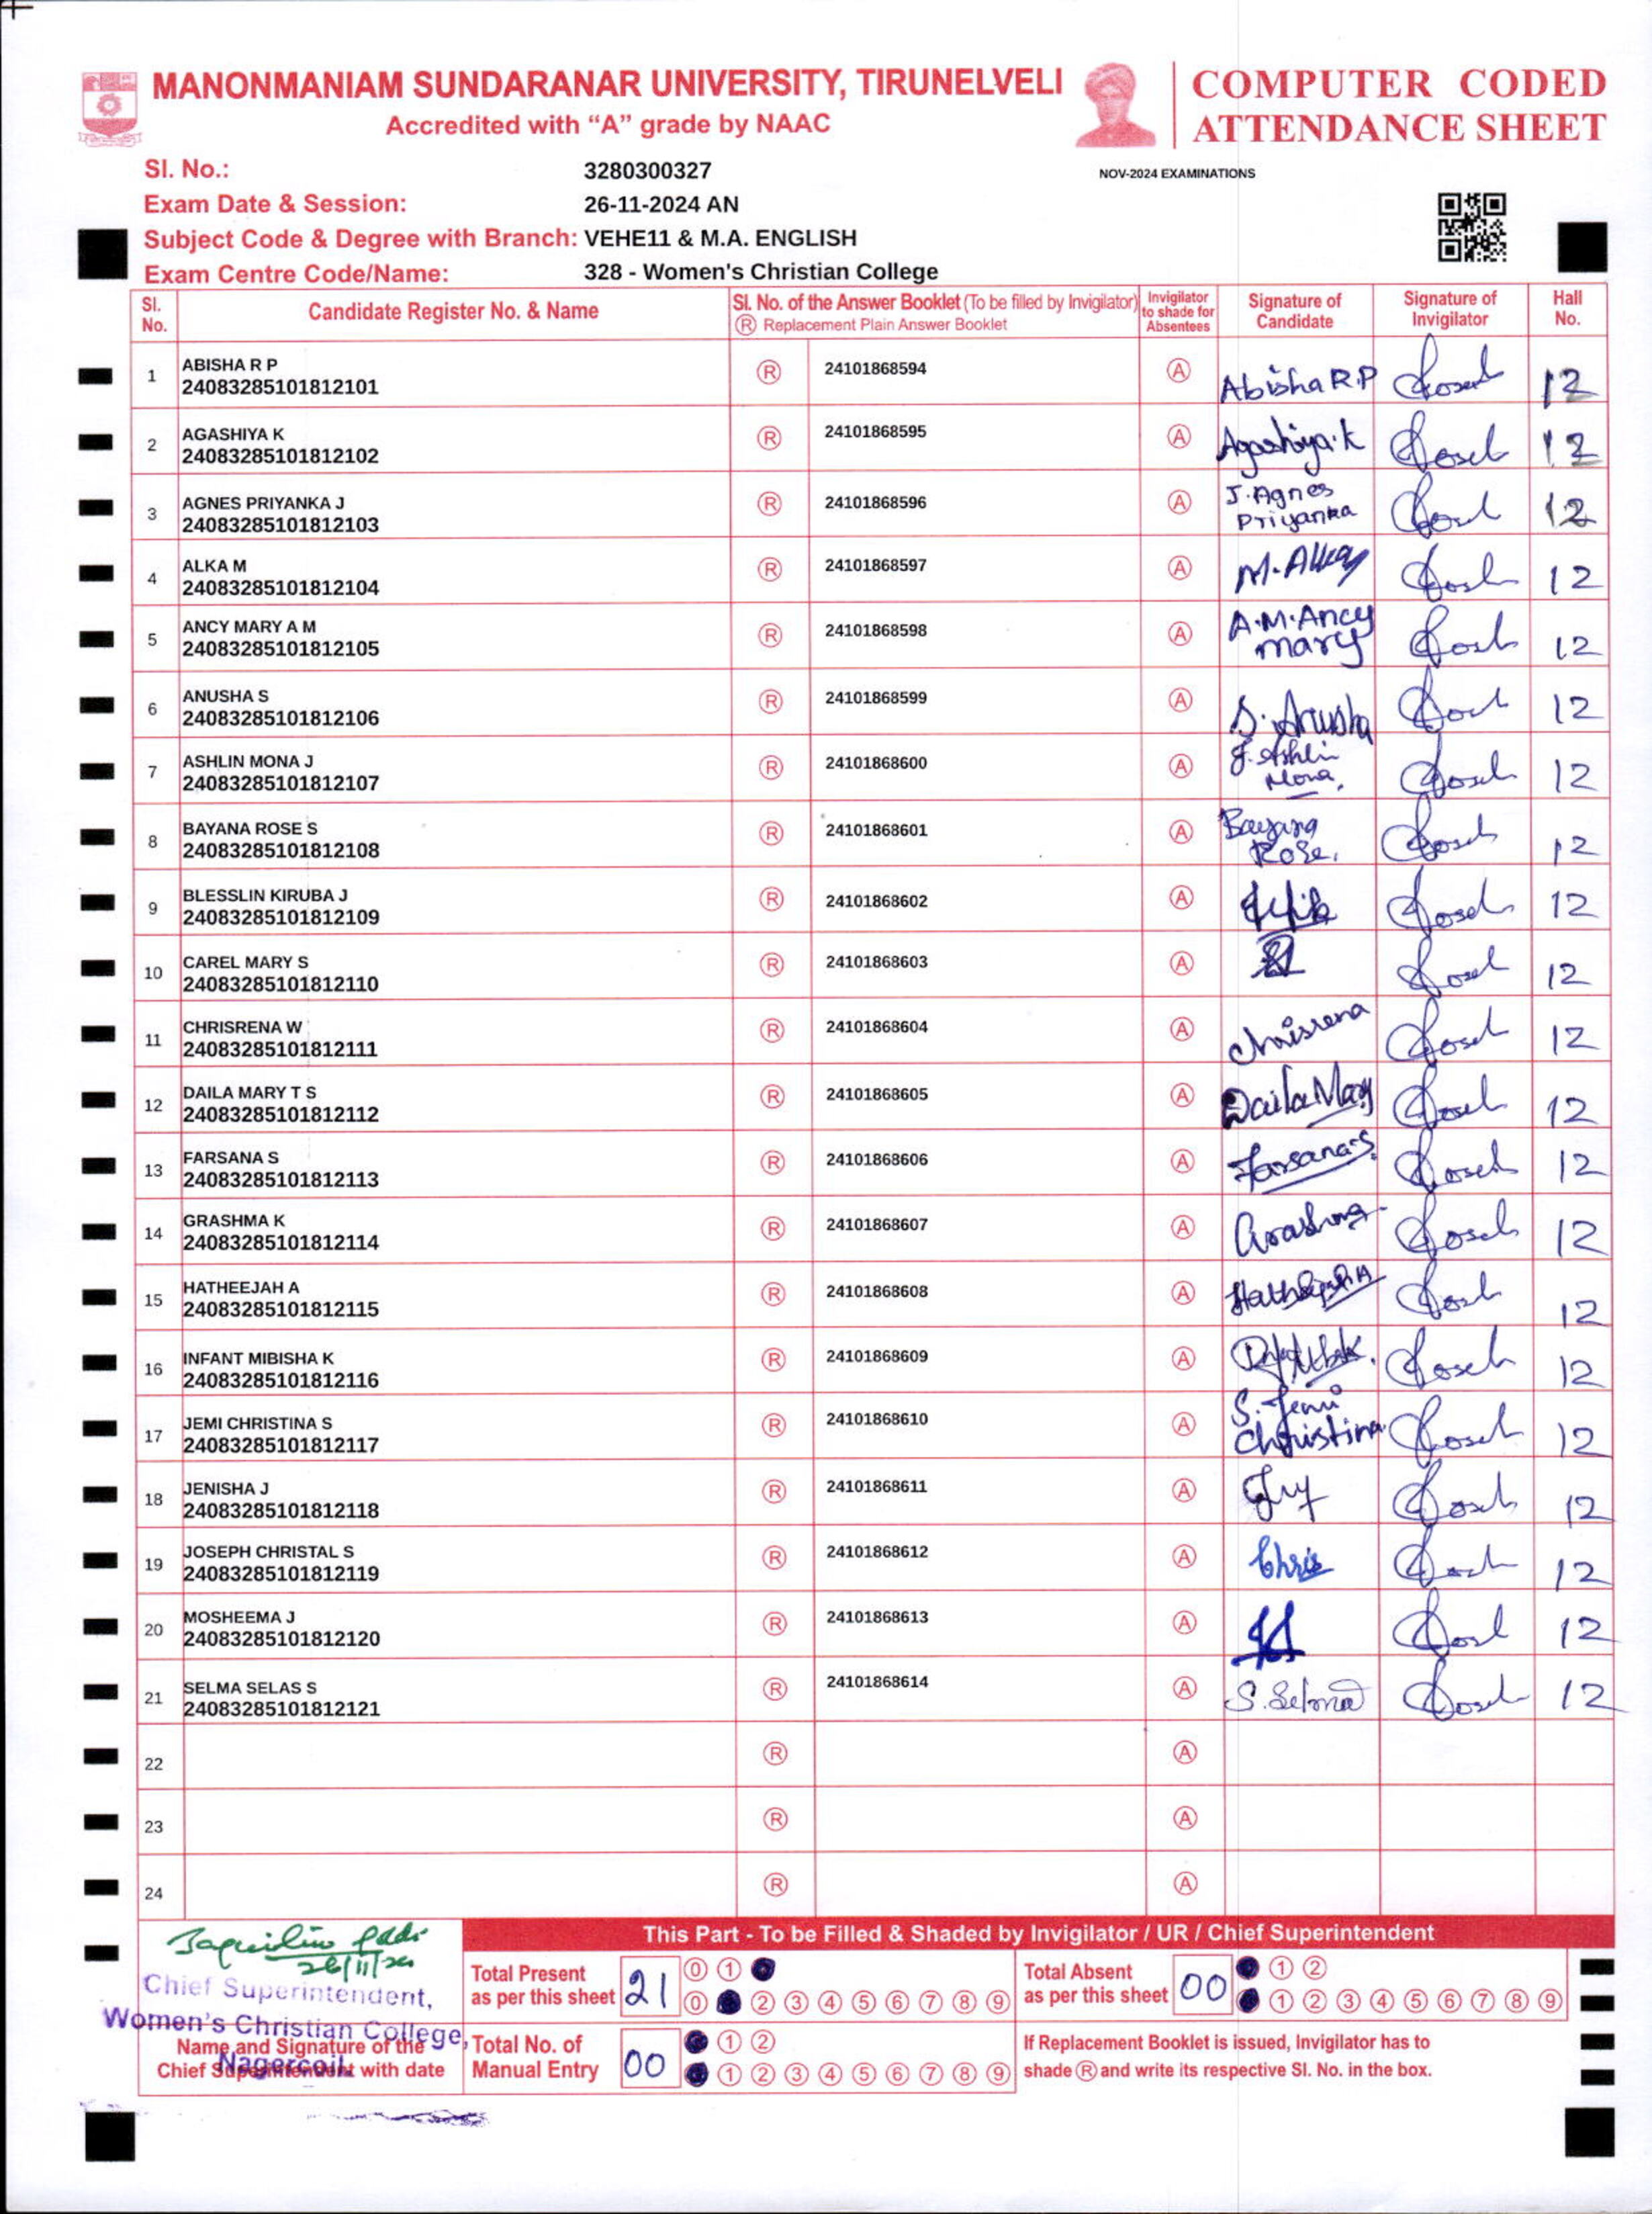 MANONMANIAM SUNDARANAR UNIVERSITY, TIRUNELVELI
Accredited with “A” grade by NAAC
COMPUTER CODED
ATTENDANCE SHEET
Sl. No.: 3280300327
NOV-2024 EXAMINATIONS
Exam Date & Session: 26-11-2024 AN
Subject Code & Degree with Branch: VEHE11 & M.A. ENGLISH
Exam Centre Code/Name: 328 - Women's Christian College
Sl. No. Candidate Register No. & Name Sl. No. of the Answer Booklet (To be filled by Invigilator) Ⓡ Replacement Plain Answer Booklet Invigilator to shade for Absentees Signature of Candidate Signature of Invigilator Hall No.
1 ABISHA R P 24083285101812101 Ⓡ 24101868594 Ⓐ Abisha R.P 12
2 AGASHIYA K 24083285101812102 Ⓡ 24101868595 Ⓐ Agashiya.k 12
3 AGNES PRIYANKA J 24083285101812103 Ⓡ 24101868596 Ⓐ J.Agnes Priyanka 12
4 ALKA M 24083285101812104 Ⓡ 24101868597 Ⓐ M.Alka 12
5 ANCY MARY A M 24083285101812105 Ⓡ 24101868598 Ⓐ A.M.Ancy mary 12
6 ANUSHA S 24083285101812106 Ⓡ 24101868599 Ⓐ S.Anusha 12
7 ASHLIN MONA J 24083285101812107 Ⓡ 24101868600 Ⓐ J.Ashlin Mona. 12
8 BAYANA ROSE S 24083285101812108 Ⓡ 24101868601 Ⓐ Bayana Rose. 12
9 BLESSLIN KIRUBA J 24083285101812109 Ⓡ 24101868602 Ⓐ 12
10 CAREL MARY S 24083285101812110 Ⓡ 24101868603 Ⓐ 12
11 CHRISRENA W 24083285101812111 Ⓡ 24101868604 Ⓐ Chrisrena 12
12 DAILA MARY T S 24083285101812112 Ⓡ 24101868605 Ⓐ Daila Mary 12
13 FARSANA S 24083285101812113 Ⓡ 24101868606 Ⓐ Farsana.S. 12
14 GRASHMA K 24083285101812114 Ⓡ 24101868607 Ⓐ Grashma 12
15 HATHEEJAH A 24083285101812115 Ⓡ 24101868608 Ⓐ Hatheejah A 12
16 INFANT MIBISHA K 24083285101812116 Ⓡ 24101868609 Ⓐ 12
17 JEMI CHRISTINA S 24083285101812117 Ⓡ 24101868610 Ⓐ S.Jemi Christina 12
18 JENISHA J 24083285101812118 Ⓡ 24101868611 Ⓐ 12
19 JOSEPH CHRISTAL S 24083285101812119 Ⓡ 24101868612 Ⓐ Chris 12
20 MOSHEEMA J 24083285101812120 Ⓡ 24101868613 Ⓐ 12
21 SELMA SELAS S 24083285101812121 Ⓡ 24101868614 Ⓐ S.Selma 12
22 Ⓡ Ⓐ
23 Ⓡ Ⓐ
24 Ⓡ Ⓐ
This Part - To be Filled & Shaded by Invigilator / UR / Chief Superintendent
26/11/24
Chief Superintendent,
Women's Christian College,
Nagercoil.
Name and Signature of the
Chief Superintendent with date
Total Present as per this sheet 21
⓪ ①
⓪ ② ③ ④ ⑤ ⑥ ⑦ ⑧ ⑨
Total Absent as per this sheet 00
① ②
① ② ③ ④ ⑤ ⑥ ⑦ ⑧ ⑨
Total No. of Manual Entry 00
① ②
① ② ③ ④ ⑤ ⑥ ⑦ ⑧ ⑨
If Replacement Booklet is issued, Invigilator has to
shade Ⓡ and write its respective Sl. No. in the box.